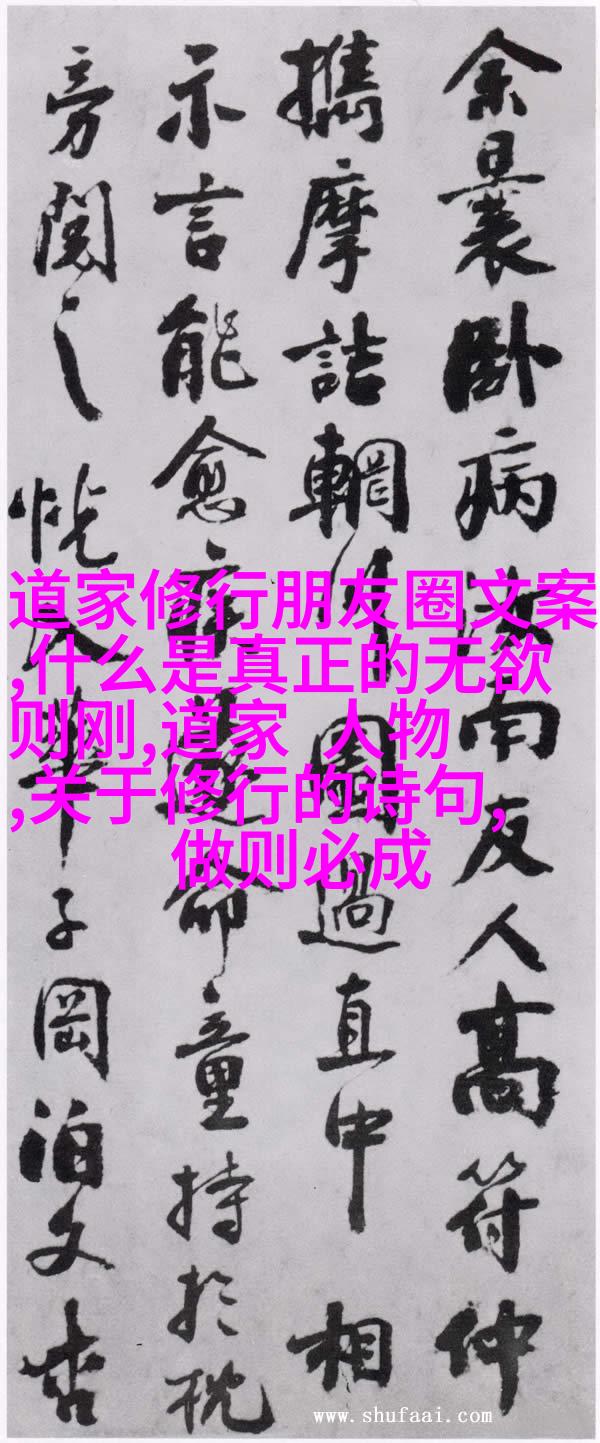 余曩卧病汝南友人高符仲
攜摩詰輞川圖過直中相
示言能愈疾遂命童持於枕
旁閱之恍入華子岡泊文杏
道家修行朋友圈文案
,什么是真正的无欲
则刚,道家 人物
,关于修行的诗句,
做则必成
www.shufaai.com